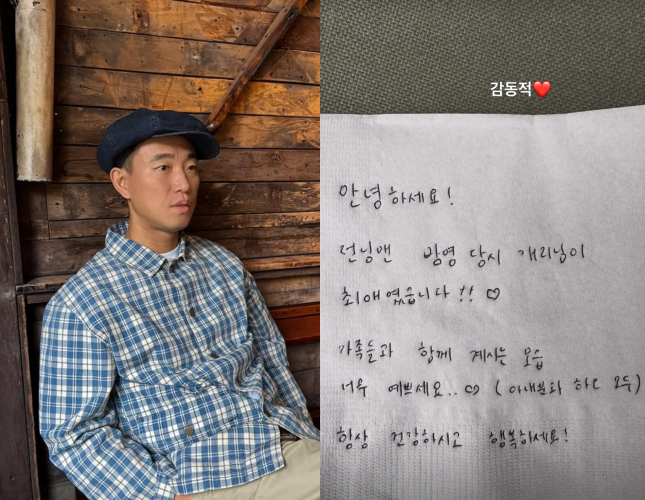 감동적❤️
안녕하세요!
런닝맨 방영 당시 개리님이
최애였습니다!! ♡
가족들과 함께 계시는 모습
너무 예쁘세요..♡ (아내분과 하오 모두)
항상 건강하시고 행복하세요!